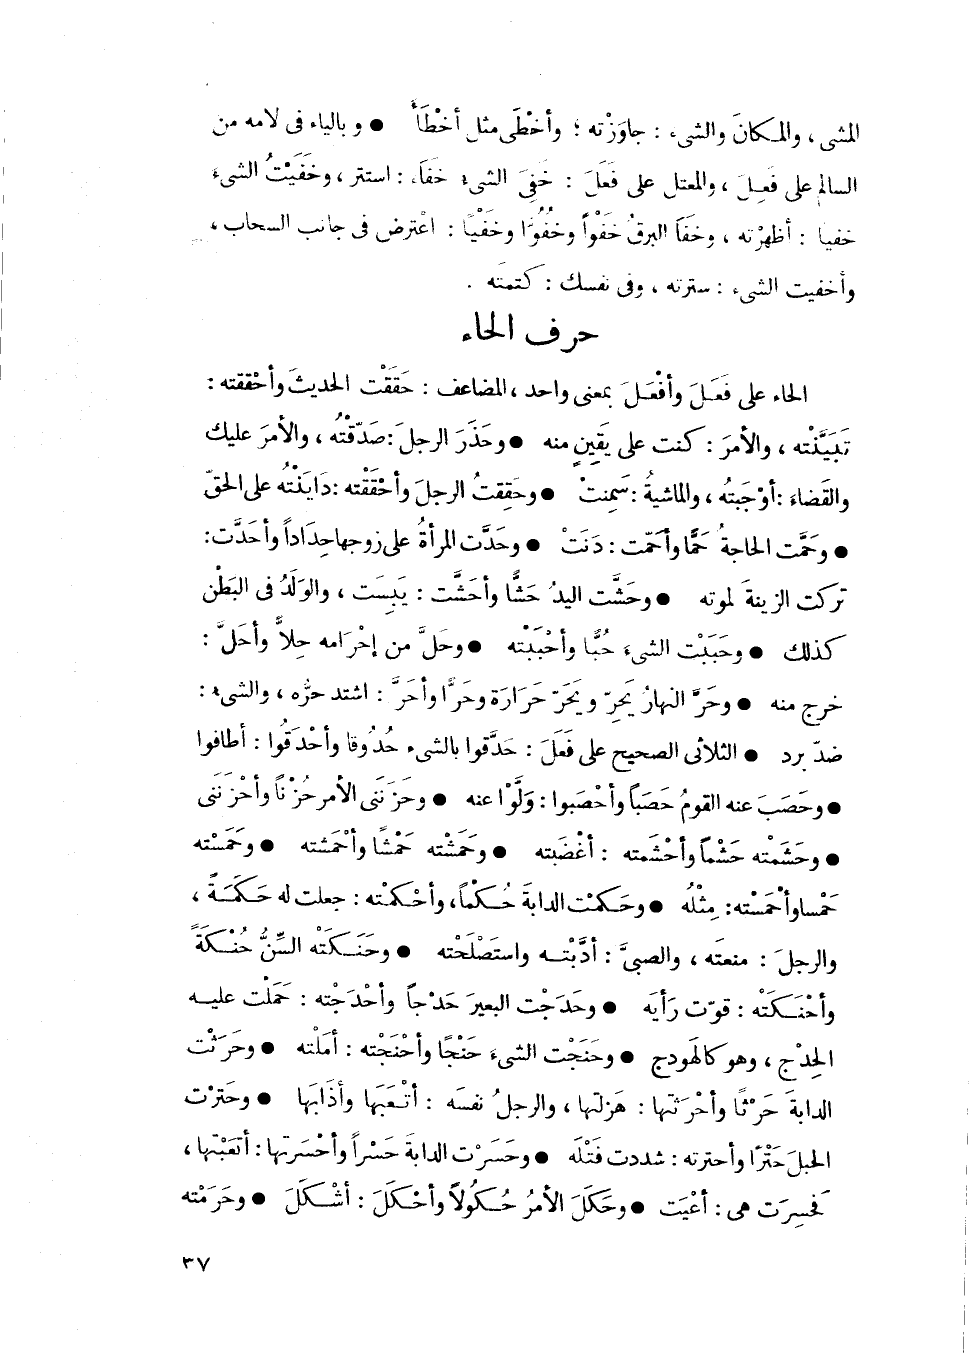 المشى ، والمكانَ والشىء : جاوَزْته ؛ وأخْطَى مثل أخْطَأَ ● و بالياء فى لامه من
السالم على فَعِـلَ ، والمعتل على فَعَلَ : خَفِىَ الشىءُ خَفَاءً : استتر ، وخَفَيْتُ الشىءَ
خفيا : أظهرْته ، وخَفَا البرقُ خَفْواً وخُفُوًّا وخَفْيًا : اعْترض فى جانب السحاب ،
وأخفيت الشىء : سترته ، وفى نفسك : كتمتَه .
حرف الحاء
الحاء على فَعَـلَ وأفْعَـلَ بمعنى واحد ، المضاعف : حَقَقْت الحديثَ وأحْققته :
تَبَيَّنْته ، والأمرَ : كنت على يَقِينٍ منه ● وحَذَرَ الرجلَ : صَدّقْتُه ، والأمرَ عليك
والقَضاءَ : أوْجَبتُه ، والماشيةُ : سَمِنتْ ● وحَقِقتُ الرجلَ وأحْقَقْته : دَايَنْتُه على الحقّ
● وحَمَّت الحاجةُ حَمًّا وأحَمّت : دَنَتْ ● وحَدَّت المرأةُ على زوجها حِدَاداً وأحَدَّت :
تركت الزينةَ لموته ● وحَشَّت اليدُ حَشًّا وأحَشَّت : يَبِسَت ، والوَلَدُ فى البَطْن
كذلك ● وحَبَبْت الشىءَ حُبًّا وأحْبَبْته ● وحَلَّ من إحْرَامه حِلاًّ وأحَلَّ :
خرج منه ● وحَرَّ النهارُ يَحِرّ ويَحَرّ حَرَارَة وحَرًّا وأحَرَّ : اشتد حرُّه ، والشىءُ :
ضدّ برد ● الثلاثى الصحيح على فَعَلَ : حَدَّقوا بالشىء حُدُوقا وأحْدَقُوا : أطافوا
● وحَصَبَ عنه القومُ حَصَباً وأحْصَبوا : وَلَّوْا عنه ● وحَزَنَنى الأمر حُزْناً وأحْزَنَنى
● وحَشَمْته حَشْماً وأحْشَمته : أغْضَبته ● وحَمَشْته حَمْشًا وأحْمَشته ● وحَمَسْته
حَمْسا وأحْمَسْته : مِثْلُه ● وحَـكمْت الدابةَ حُـكْماً ، وأحْـكمْته : جعلت له حَـكَمَـةً ،
والرجلَ : منعتَه ، والصبىَّ : أدَّبْتـه واستَصْلَحْته ● وحَنَـكَتْه السِّنُّ حُنْـكَةً
وأحْنَـكَتْه : قوّت رَأيَه ● وحَدَجْت البعيرَ حَدْجاً وأحْدَجْته : حَمَلْت عليـه
الحِدْج ، وهو كالهَودج ● وحَنَجْت الشىءَ حَنْجًا وأحْنَجْته : أمَلْته ● وحَرَثْت
الدابةَ حَرْثًا وأحْرَثتها : هَزلتها ، والرجلُ نفسَه : أتْعَبَها وأذَابَها ● وحَترْت
الحبلَ حَتْرًا وأحترته : شددت فَتْلَه ● وحَسَرْت الدابةَ حَسْراً وأحْسَرتها : أتعَبْتها ،
فَحسِرَت هى : أعْيَت ● وحَكَلَ الأمرُ حُـكُولاً وأحْـكَلَ : أشْـكَلَ ● وحَرَمْته
٣٧